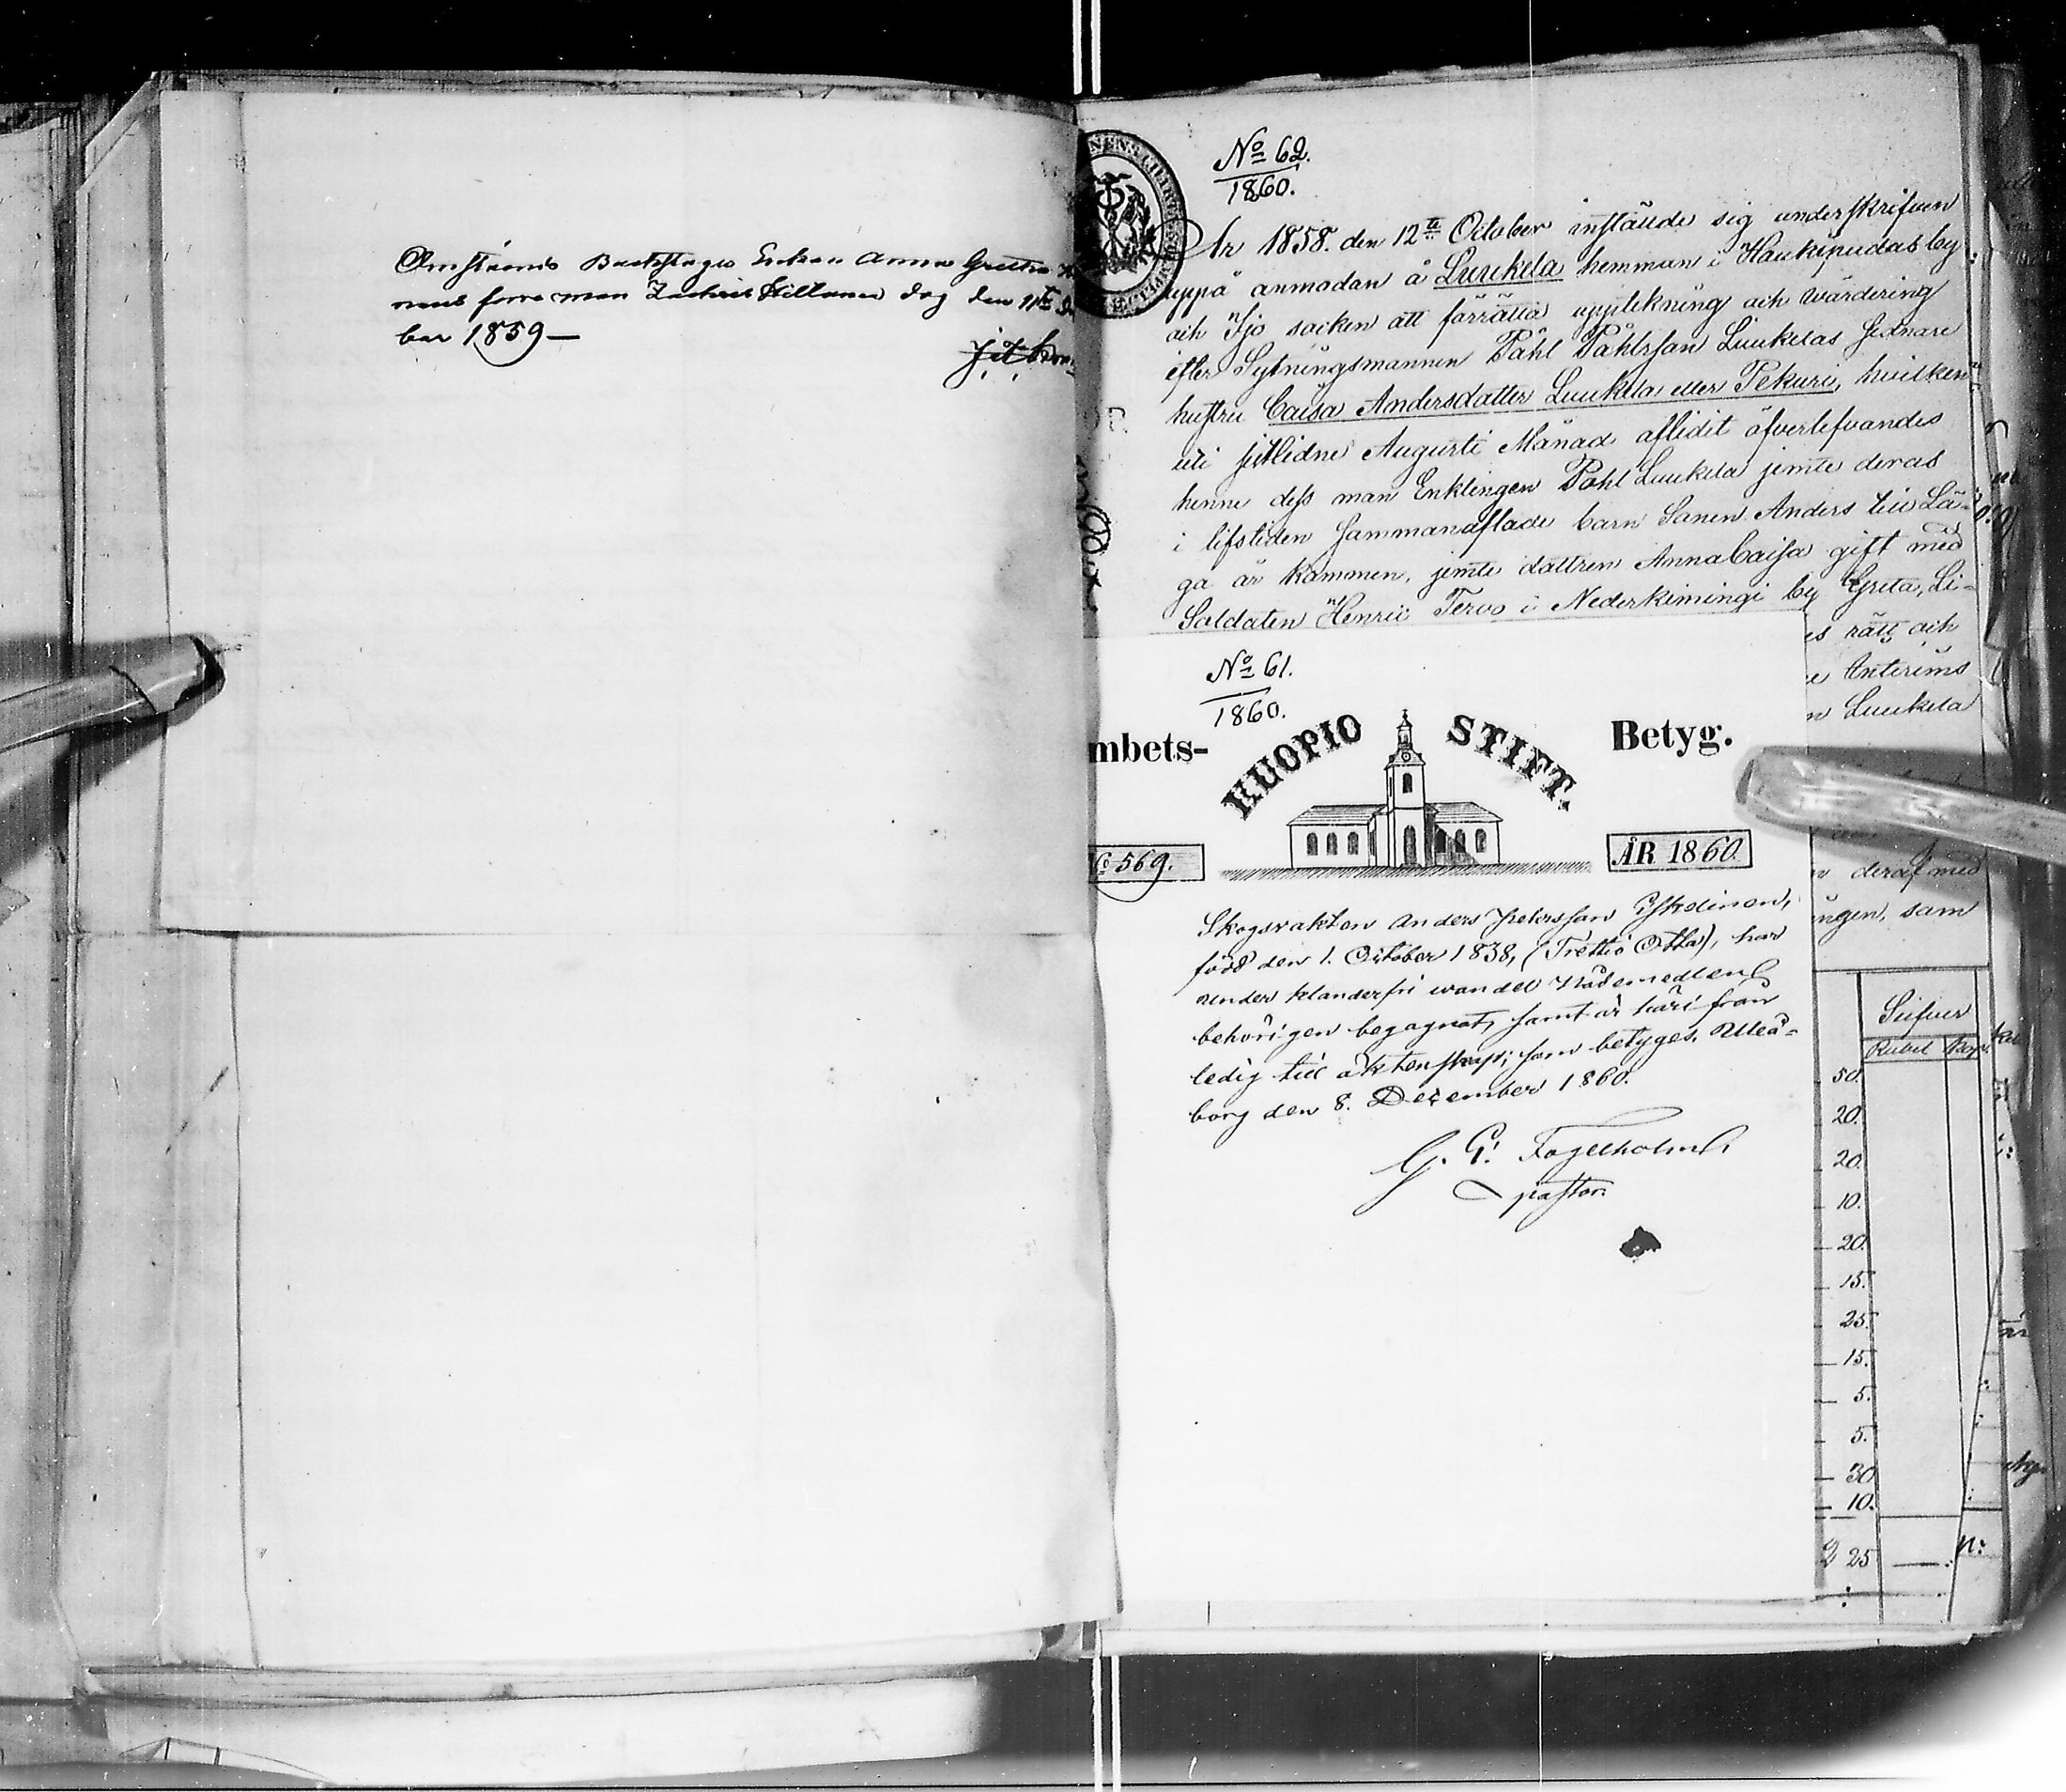 Omstående Backstugu Enkan Anna Greta
nens förre man Zachris Hiltunen dog den 11te
ber 1859 —
No 62.
1860.
År 1858. den 12te October inställde sig underskrifven
uppå anmodan å Luukela hemman i Haukipudas by
och Ijo socken att förrätta uppteckning och värdering
efter Sytningsmannen Påhl Påhlsson Luukelas sednare
hustru Caisa Andersdotter Luukela eller Pekuri, hvilken
uti sistlidne Augusti Månad aflidit öfverlefvandes
henne dess man Enklingen Påhl Luukela jemte deras
i lifstiden sammanaflade barn Sonen Anders till La-
ga år kommen, jemte dottren Anna Caisa gift med
Soldaten Henric Tervo i Nederkimingi by Greta, Li-
s rätt och
e Interims
n Luukela
deraf med
ingen, som
No 61.
1860.
mbets-
KUOPIO STIFT.
Betyg.
No 569.
ÅR 1860.
Skogsvakten Anders Petersson Iskelinen,
född den 1. October 1838, (Trettio Otta), har
under klanderfri wandel Nådemedlen
behörigen begagnat, samt är härifrån
ledig till äktenskap; som betyges. Uleå-
borg den 8. December 1860.
G. G. Fogelholm
pastor.
Silfver
Rubel Kop.
50.
20.
20.
10.
20.
15.
25.
15.
5.
5.
30
10.
2 25